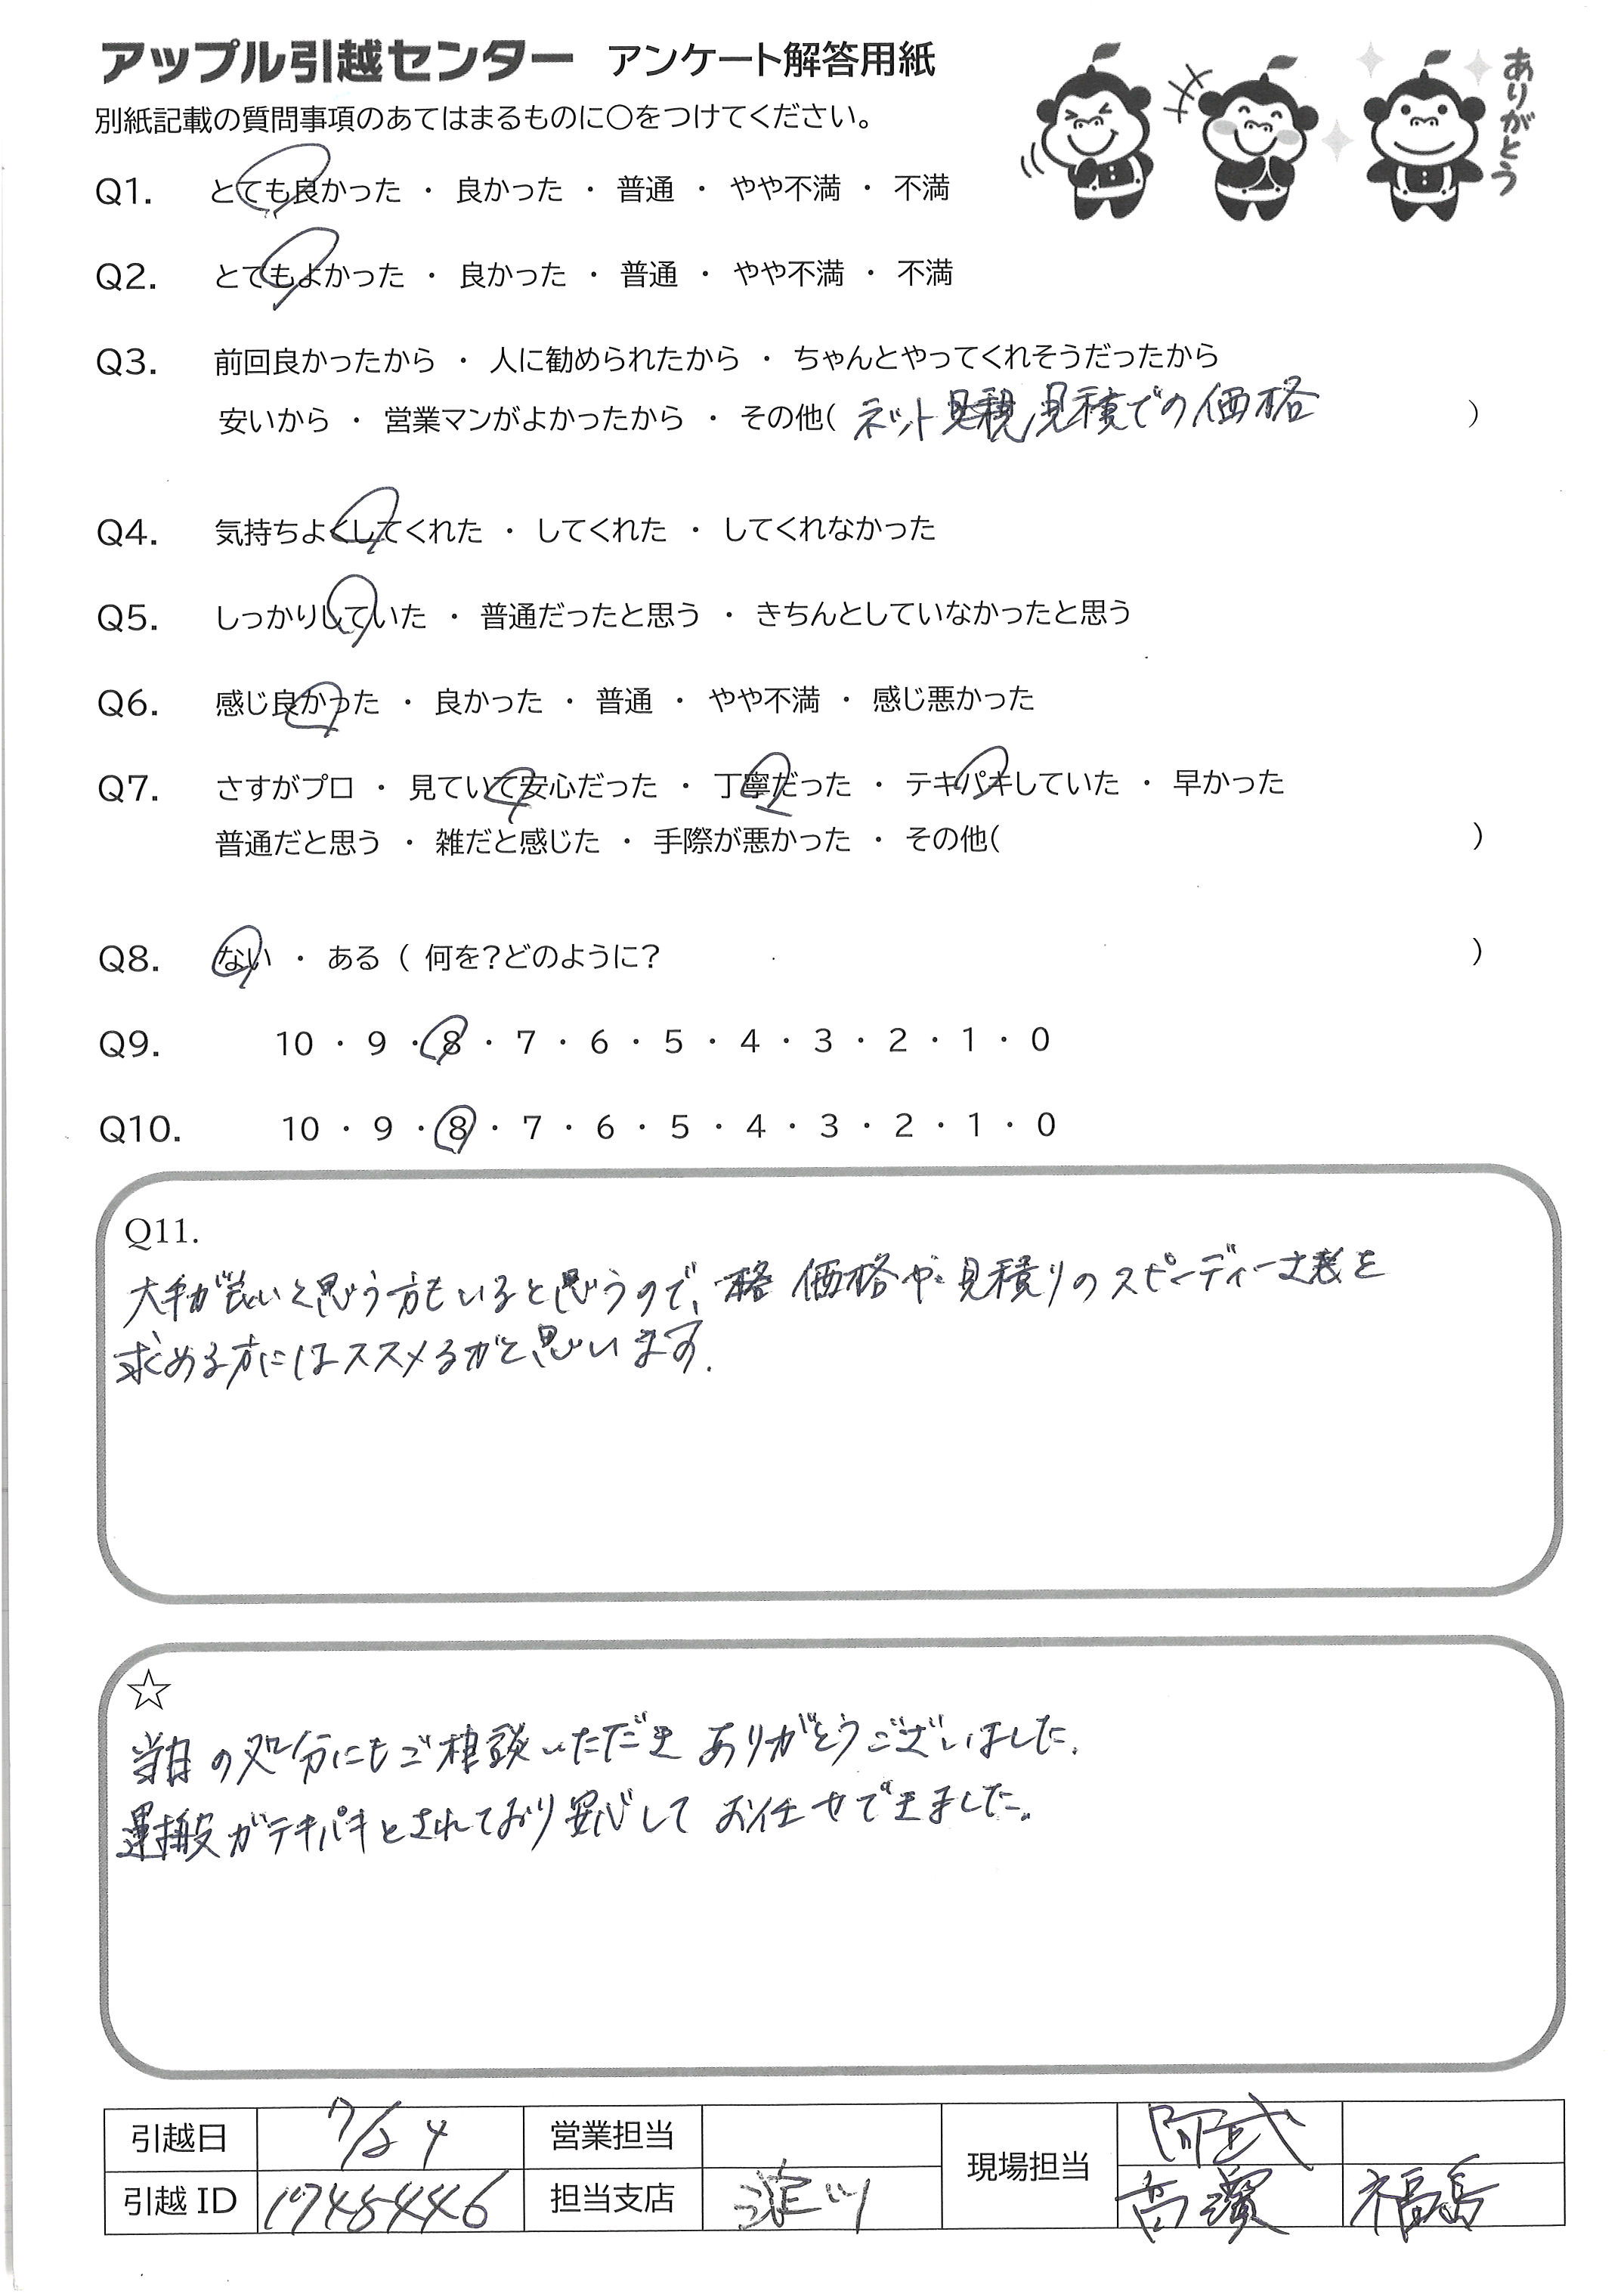 アップル引越センター アンケート解答用紙
ありがとう
別紙記載の質問事項のあてはまるものに○をつけてください。
Q1. とても良かった ・ 良かった ・ 普通 ・ やや不満 ・ 不満
Q2. とてもよかった ・ 良かった ・ 普通 ・ やや不満 ・ 不満
Q3. 前回良かったから ・ 人に勧められたから ・ ちゃんとやってくれそうだったから
安いから ・ 営業マンがよかったから ・ その他( ネット見積での価格 )
Q4. 気持ちよくしてくれた ・ してくれた ・ してくれなかった
Q5. しっかりしていた ・ 普通だったと思う ・ きちんとしていなかったと思う
Q6. 感じ良かった ・ 良かった ・ 普通 ・ やや不満 ・ 感じ悪かった
Q7. さすがプロ ・ 見ていて安心だった ・ 丁寧だった ・ テキパキしていた ・ 早かった
普通だと思う ・ 雑だと感じた ・ 手際が悪かった ・ その他( )
Q8. ない ・ ある ( 何を?どのように? )
Q9. 10 ・ 9 ・ 8 ・ 7 ・ 6 ・ 5 ・ 4 ・ 3 ・ 2 ・ 1 ・ 0
Q10. 10 ・ 9 ・ 8 ・ 7 ・ 6 ・ 5 ・ 4 ・ 3 ・ 2 ・ 1 ・ 0
Q11.
大手が良いと思う方もいると思うので、価格や見積りのスピーディーさを
求める方にはススメるかと思います.
☆
当日の処分にもご相談いただきありがとうございました.
運搬がテキパキとされており安心してお任せできました。
引越日 7/24 営業担当 現場担当
引越ID 1948446 担当支店 高濱 福島